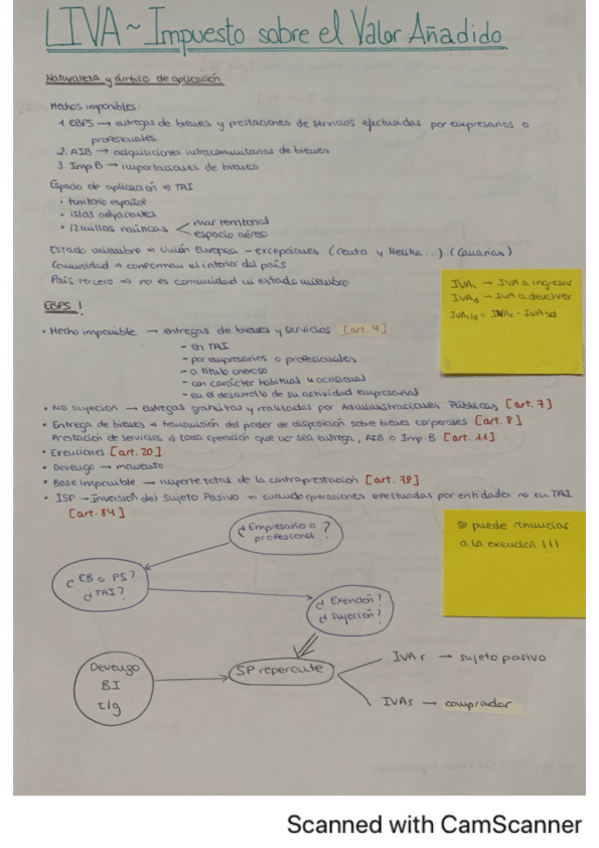 LIVA ~ Impuesto sobre el Valor Añadido
Naturaleza y ámbito de aplicación
Hechos imponibles:
1. EBPS → entregas de bienes y prestaciones de servicios efectuadas por empresarios o
profesionales
2. AIB → adquisiciones intracomunitarias de bienes
3. Imp B → importaciones de bienes
Espacio de aplicación ⇒ TAI
• territorio español
• islas adyacentes
• 12 millas náuticas < mar territorial
espacio aéreo
Estado miembro ⇒ Unión Europea - excepciones (Ceuta y Melilla...) (Canarias)
Comunidad ⇒ conforman el interior del país
País tercero ⇒ no es comunidad ni estado miembro
IVAi → IVA a ingresar
IVAd → IVA a devolver
IVAi/d = IVAr - IVAsd
EBPS !
• Hecho imponible → entregas de bienes y servicios [art. 4]
- en TAI
- por empresarios o profesionales
- a título oneroso
- con carácter habitual u ocasional
- en el desarrollo de su actividad empresarial
• No sujeción → entregas gratuitas y realizadas por Administraciones Públicas [art. 7]
• Entrega de bienes ⇒ transmisión del poder de disposición sobre bienes corporales [art. 8]
Prestación de servicios ⇒ toda operación que no sea entrega, AIB o Imp B [art. 11]
• Exenciones [art. 20]
• Devengo → momento
• Base imponible → importe total de la contraprestación [art. 78]
• ISP → Inversión del Sujeto Pasivo ⇒ cuando operaciones efectuadas por entidades no en TAI
[art. 84]
Se puede renunciar
a la exención !!!
¿Empresario o
profesional?
¿EB o PS?
¿TAI?
¿Exención?
¿Sujeción?
Devengo
BI
t/g
SP repercute
IVAr → sujeto pasivo
IVAs → comprador
Scanned with CamScanner